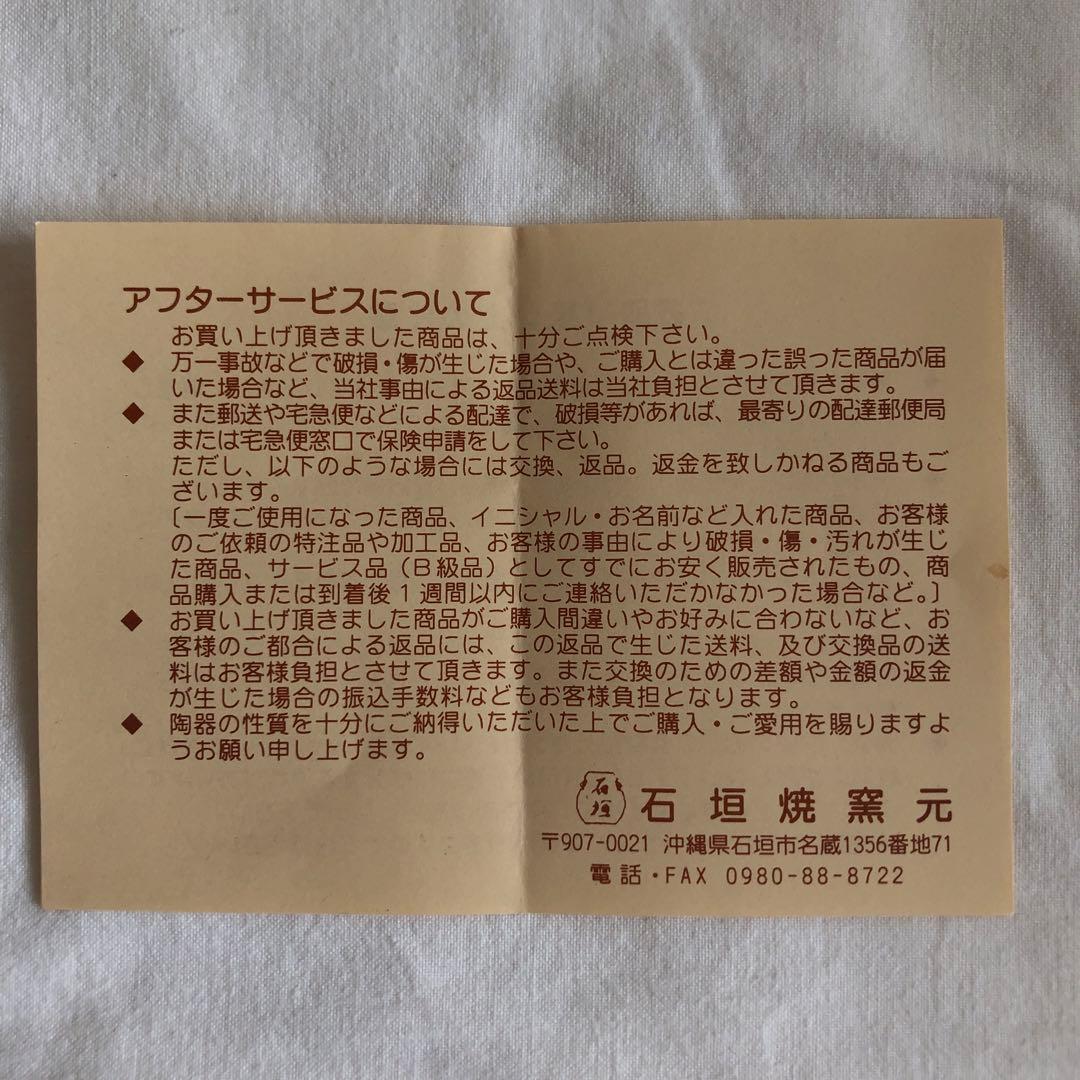 アフターサービスについて
お買い上げ頂きました商品は、十分ご点検下さい。
◆ 万一事故などで破損・傷が生じた場合や、ご購入とは違った誤った商品が届
いた場合など、当社事由による返品送料は当社負担とさせて頂きます。
◆ また郵送や宅急便などによる配達で、破損等があれば、最寄りの配達郵便局
または宅急便窓口で保険申請をして下さい。
ただし、以下のような場合には交換、返品。返金を致しかねる商品もご
ざいます。
〔一度ご使用になった商品、イニシャル・お名前など入れた商品、お客様
のご依頼の特注品や加工品、お客様の事由により破損・傷・汚れが生じ
た商品、サービス品（B級品）としてすでにお安く販売されたもの、商
品購入または到着後1週間以内にご連絡いただかなかった場合など。〕
◆ お買い上げ頂きました商品がご購入間違いやお好みに合わないなど、お
客様のご都合による返品には、この返品で生じた送料、及び交換品の送
料はお客様負担とさせて頂きます。また交換のための差額や金額の返金
が生じた場合の振込手数料などもお客様負担となります。
◆ 陶器の性質を十分にご納得いただいた上でご購入・ご愛用を賜りますよ
うお願い申し上げます。
石垣 石垣焼窯元
〒907-0021 沖縄県石垣市名蔵1356番地71
電話・FAX 0980-88-8722